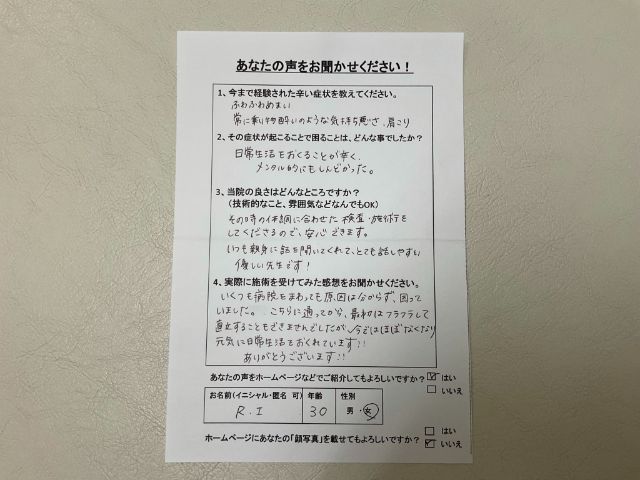 あなたの声をお聞かせください！
1、今まで経験された辛い症状を教えてください。
ふわふわめまい
常に乗り物酔いのような気持ち悪さ、肩こり
2、その症状が起こることで困ることは、どんな事でしたか？
日常生活をおくることが辛く、
メンタル的にもしんどかった。
3、当院の良さはどんなところですか？
(技術的なこと、雰囲気などなんでもOK)
その時の体調に合わせた検査・施術を
してくださるので、安心できます。
いつも親身に話を聞いてくれて、とても話しやすい
優しい先生です！
4、実際に施術を受けてみた感想をお聞かせください。
いくつも病院をまわっても原因は分からず、困って
いました。こちらに通ってから、最初はフラフラして
直立することもできませんでしたが、今ではほぼなくなり
元気に日常生活をおくれています!!
ありがとうございます!!
あなたの声をホームページなどでご紹介してもよろしいですか？ はい
いいえ
お名前(イニシャル・匿名 可) 年齢 性別
R.I 30 男・女
ホームページにあなたの「顔写真」を載せてもよろしいですか？ はい
いいえ